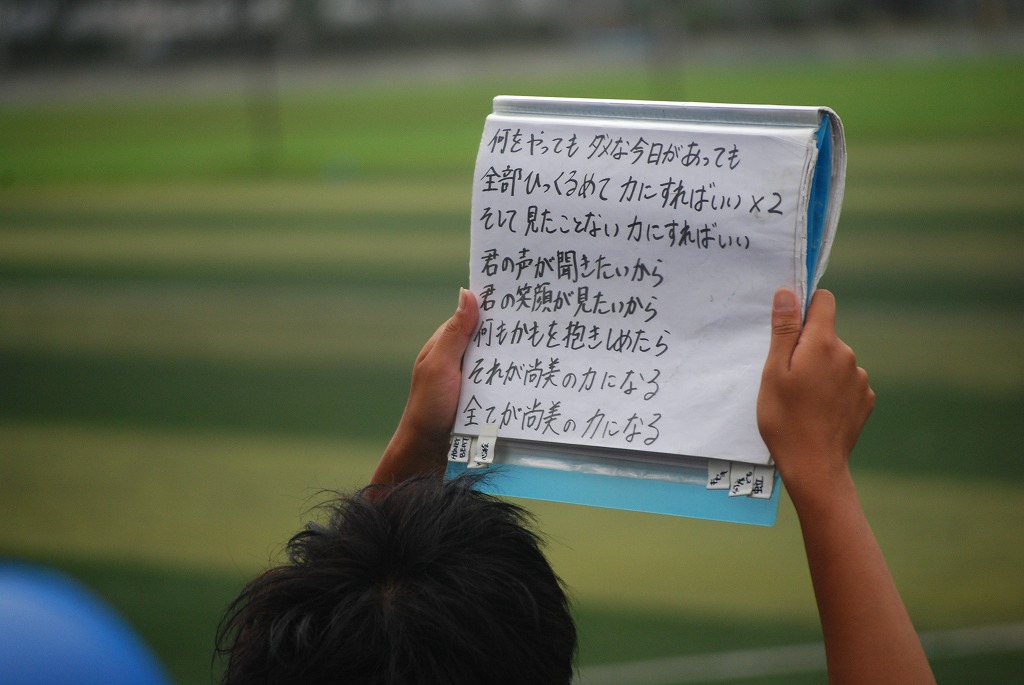 何をやっても ダメな今日があっても
全部ひっくるめて 力にすればいい ×2
そして 見たことない 力にすればいい
君の声が聞きたいから
君の笑顔が見たいから
何もかもを抱きしめたら
それが尚美の力になる
全てが尚美の力になる
HONEY BEAT